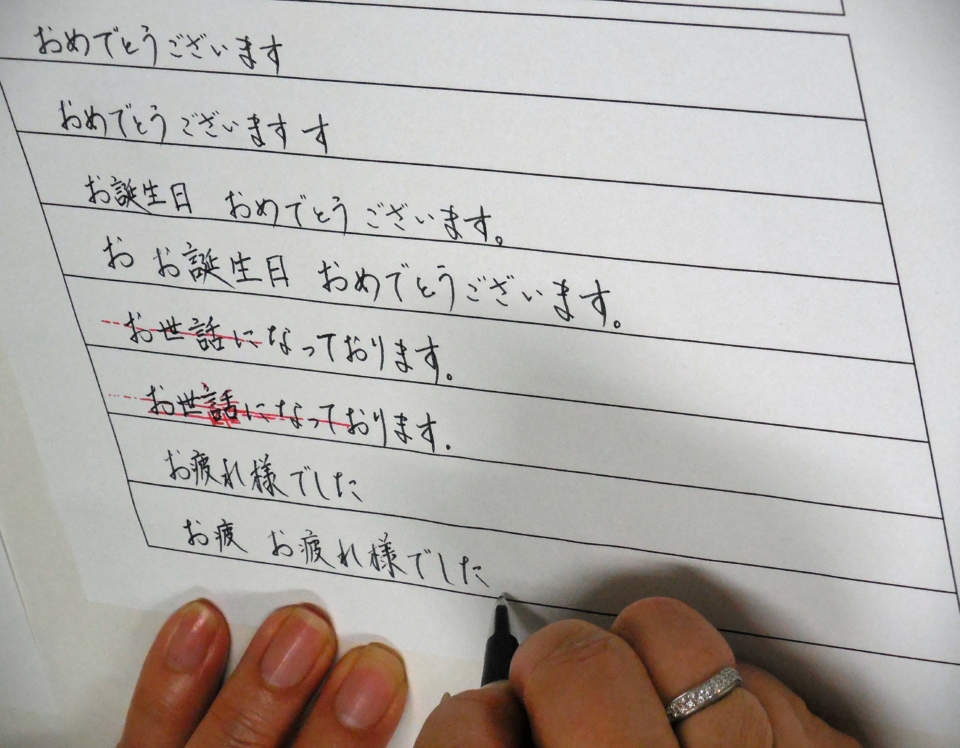 おめでとうございます
おめでとうございます す
お誕生日 おめでとうございます。
お お誕生日 おめでとうございます。
お世話になっております。
お世話になっております.
お疲れ様でした
お疲 お疲れ様でした